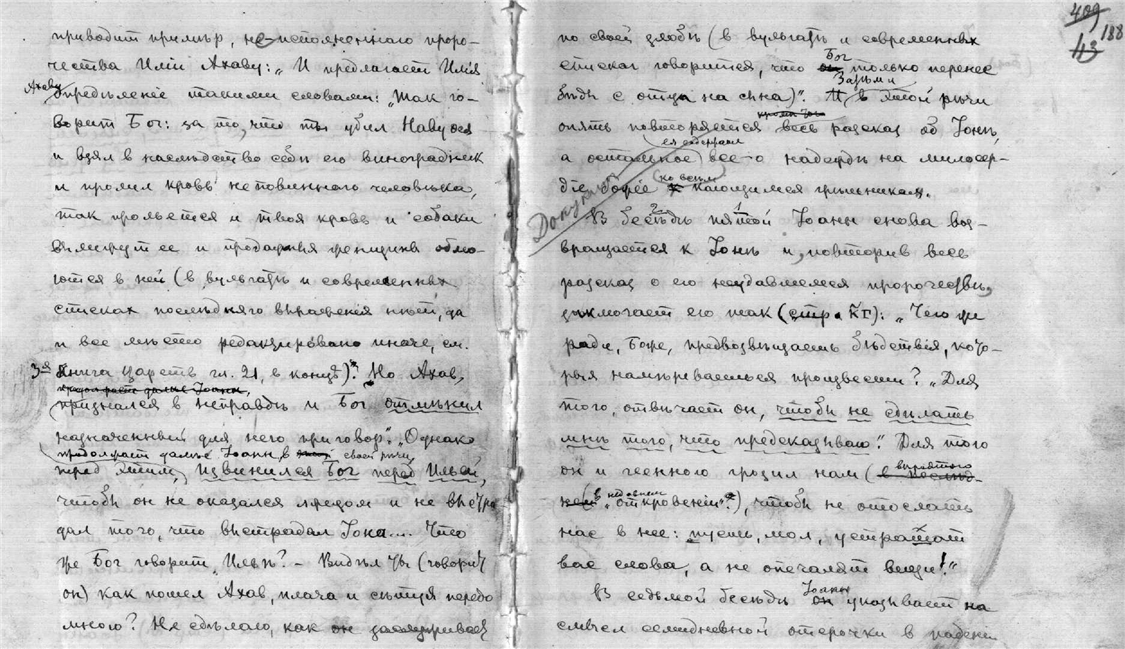 приводит пример, не исполненнаго проро-
чества Илiи Ахаву: „И предлагает Илiя
Ахаву
определенiе такими словами: „Так го-
ворит Бог: за то, что ты убил Навуѳея
и взял в наследство себе его виноградник
и пролил кровь неповиннаго человѣка,
так прольется и твоя кровь и собаки
вылижут ее и продажныя женщины обмо-
ются в ней (в вульгатѣ и современных
списках последняго выраженiя нѣт, да
и все мѣсто редактировано иначе, см.
3-я Книга Царств гл. 21, в концѣ)". Но Ахав,
продолжает далѣе Iоанн,
признался в неправдѣ и Бог отмѣнил
назначенный для него приговор". „Однако
продолжает далѣе Iоанн, в своей рѣчи
пред этим, извинился Бог перед Ильей,
чтобы он не оказался лжецом и не выстра-
дал того, что выстрадал Iона.... Что
же Бог говорит Ильѣ? – Видѣл ты (говорит
он) как пошел Ахав, плача и сѣтуя передо
мною? Не сдѣлаю, как он заслуживает
409
188
43
по своей злобѣ (в вульгатѣ и современных
списках говорится, что Бог только перенес
бѣды с отца на сына)". Затѣм в этой рѣчи
кроме того
опять повторяется весь разсказ об Iонѣ,
ея содержан
а остальное все о надеждѣ на милосер-
дiе божiе ко всѣм кающимся грѣшникам.
В бесѣдѣ пятой Iоанн снова воз-
вращается к Iонѣ и, повторив весь
разсказ о его неудавшемся пророчествѣ,
заключает его так (стр. КГ): „Чего же
ради, Боже, предвозвѣщаешь бѣдствiя, кото-
рыя намѣреваешься произвести? „Для
того, отвѣчает он, чтобы не сдѣлать
мнѣ того, что предсказываю". Для того
он и геенною грозил нам (вѣроятно
в недавнем „откровенiи"?), чтобы не отослать
нас в нее: пусть, мол, устрашат
вас слова, а не опечалят вещи!"
В седьмой бесѣдѣ Iоанн указывает на
смысл семидневной отсрочки в паденiи